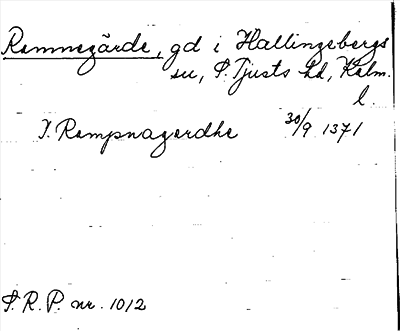 Ramnegärde, gd i Hallingebergs
sn, S. Tjusts hd, Kalm.
l.
I. Rampnagardhe 30/9 1371
S. R. P. nr. 1012